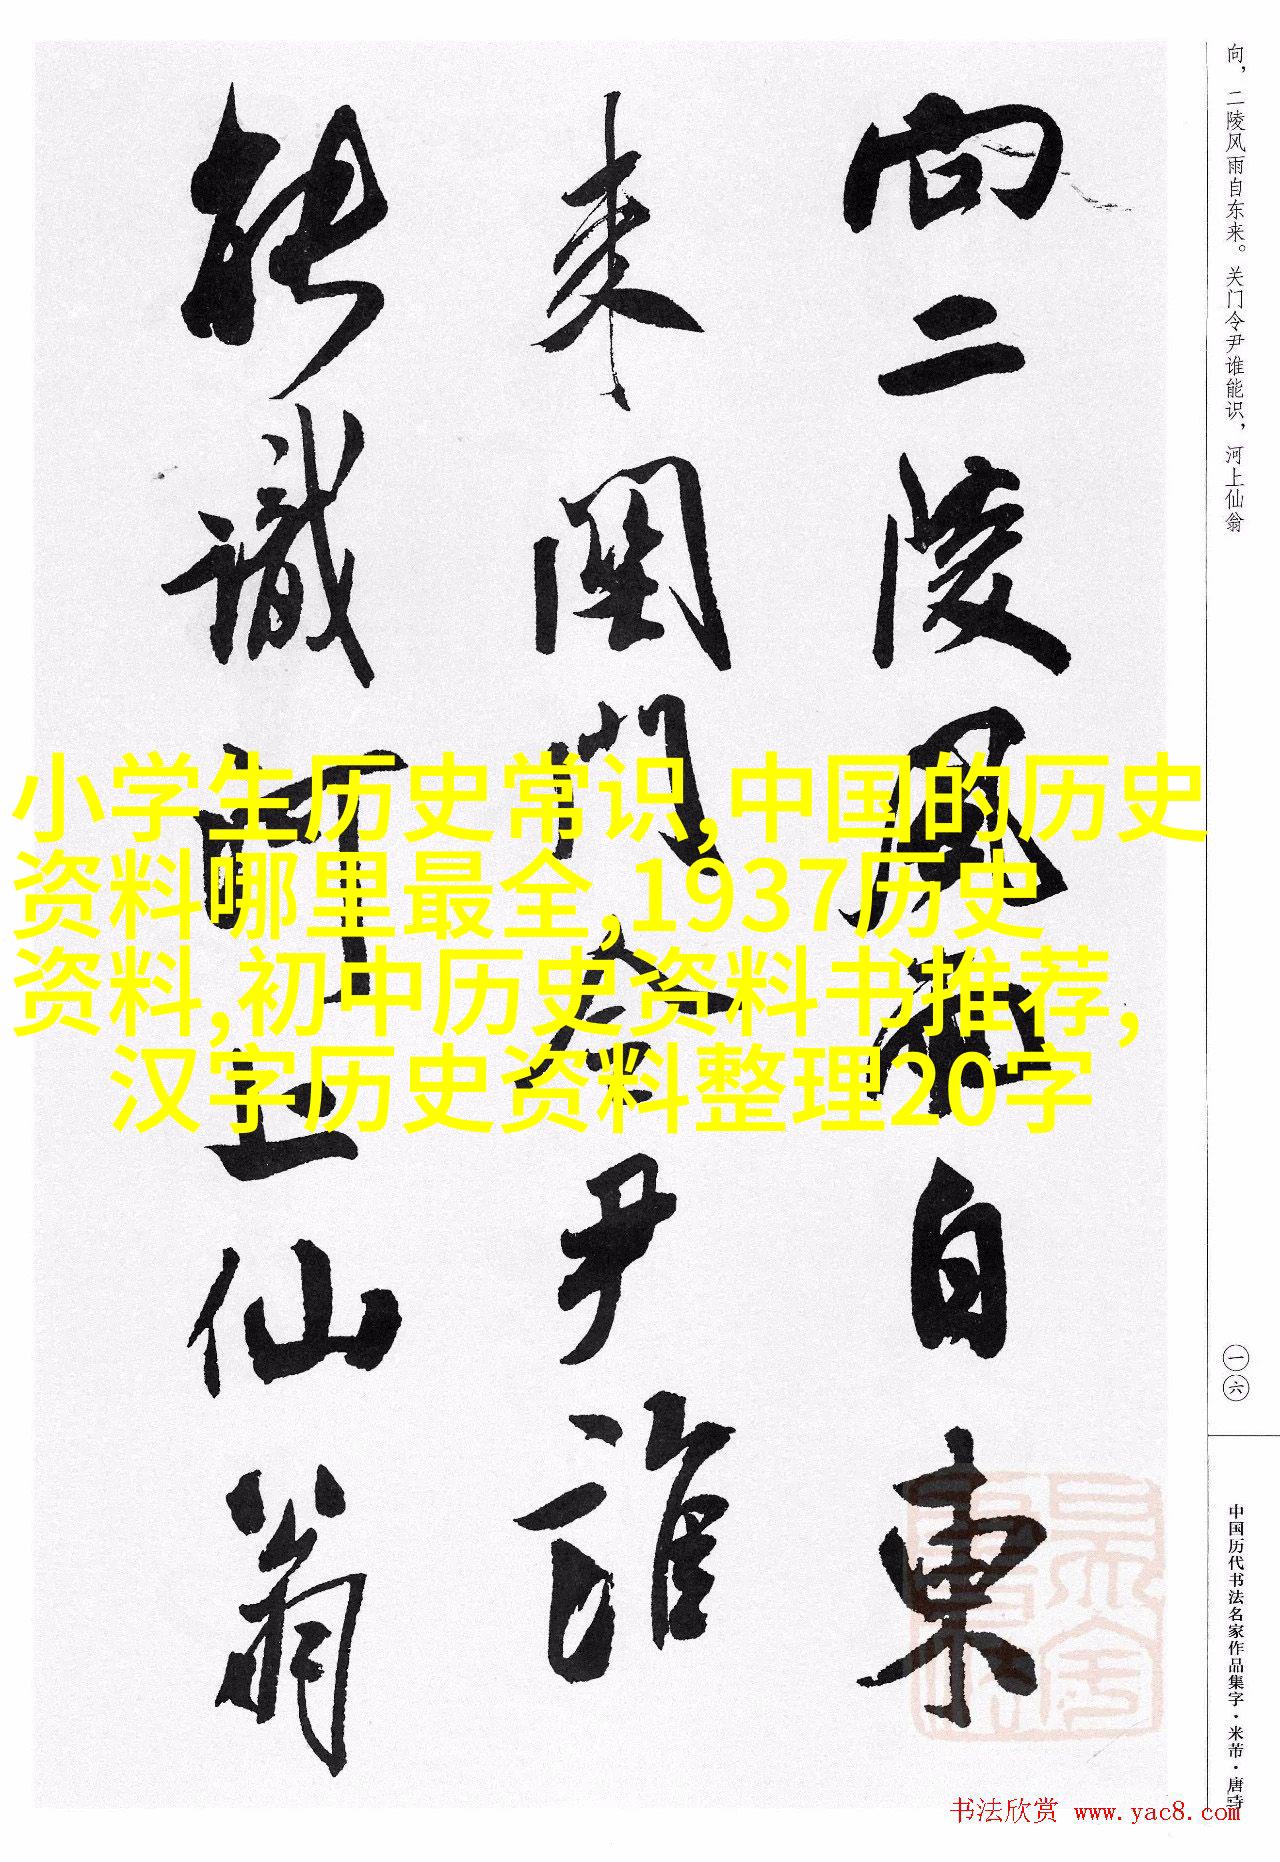 向，二陵风雨自东来。关门令尹谁能识，河上仙翁
向二陵風雨自東
来関門令尹誰
能識河上仙翁
小学生历史常识,中国的历史
资料哪里最全,1937历史
资料,初中历史资料书推荐,
汉字历史资料整理20字
一六
中国历代书法名家作品集字·米芾·唐诗
书法欣赏 www.yac8.com